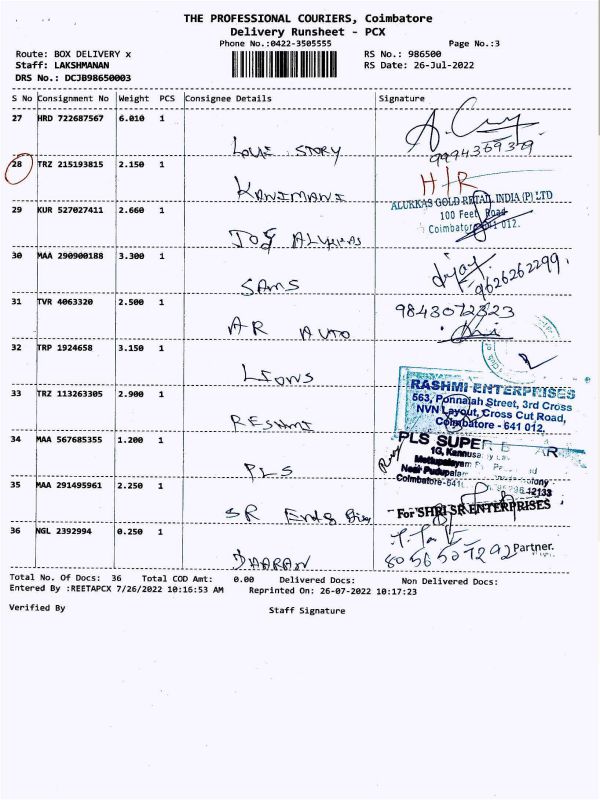 THE PROFESSIONAL COURIERS, Coimbatore
Delivery Runsheet - PCX
Phone No.:0422-3505555
Page No.:3
Route: BOX DELIVERY x
RS No.: 986500
Staff: LAKSHMANAN
RS Date: 26-Jul-2022
DRS No.: DCJB98650003
S No Consignment No Weight PCS Consignee Details Signature
27 HRD 722687567 6.010 1
LOVE STORY
9994369379
28 TRZ 215193815 2.150 1
H/R
KANIMANI
ALUKKAS GOLD RETAIL INDIA (P) LTD
29 KUR 527027411 2.660 1
100 Feet Road
Coimbatore 641 012.
JOY ALUKKAS
30 MAA 290900188 3.300 1
9626262299.
SAMS
31 TVR 4063320 2.500 1
9843072323
AR AUTO
32 TRP 1924658 3.150 1
LIONS
33 TRZ 113263305 2.900 1
RASHMI ENTERPRISES
563, Ponnaiah Street, 3rd Cross
NVN Layout, Cross Cut Road,
Coimbatore - 641 012.
RESHMI
34 MAA 567685355 1.200 1
PLS SUPER B AR
1G, Kannusa
Mettupalayam
Near Pudupalam
Colony
Coimbatore-641
12133
PLS
35 MAA 291495961 2.250 1
For SHRI SR ENTERPRISES
SR
36 NGL 2392994 0.250 1
8056507292 Partner.
DHARAN
Total No. Of Docs: 36 Total COD Amt: 0.00 Delivered Docs: Non Delivered Docs:
Entered By :REETAPCX 7/26/2022 10:16:53 AM Reprinted On: 26-07-2022 10:17:23
Verified By Staff Signature